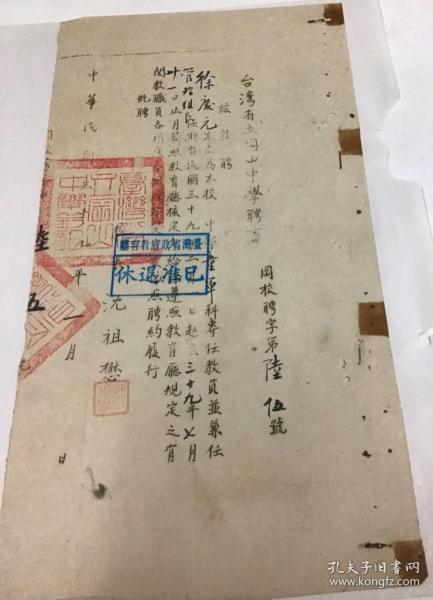 台灣省立岡山中學聘書
岡校聘字第陸伍號
茲敦聘
徐慶元先生為本校中童軍科專任教員並兼任
管理組長期自民國三十九年二月一日起至三十九年七月
卅一日止月薪照教育廳核定給並遵照教育廳規定之有
關教職員各項照聘約履行
此聘
校長沈祖懋
中華民國年一月日
臺灣省政府教育廳
已准退休
孔夫子旧书网
www.kongfz.com